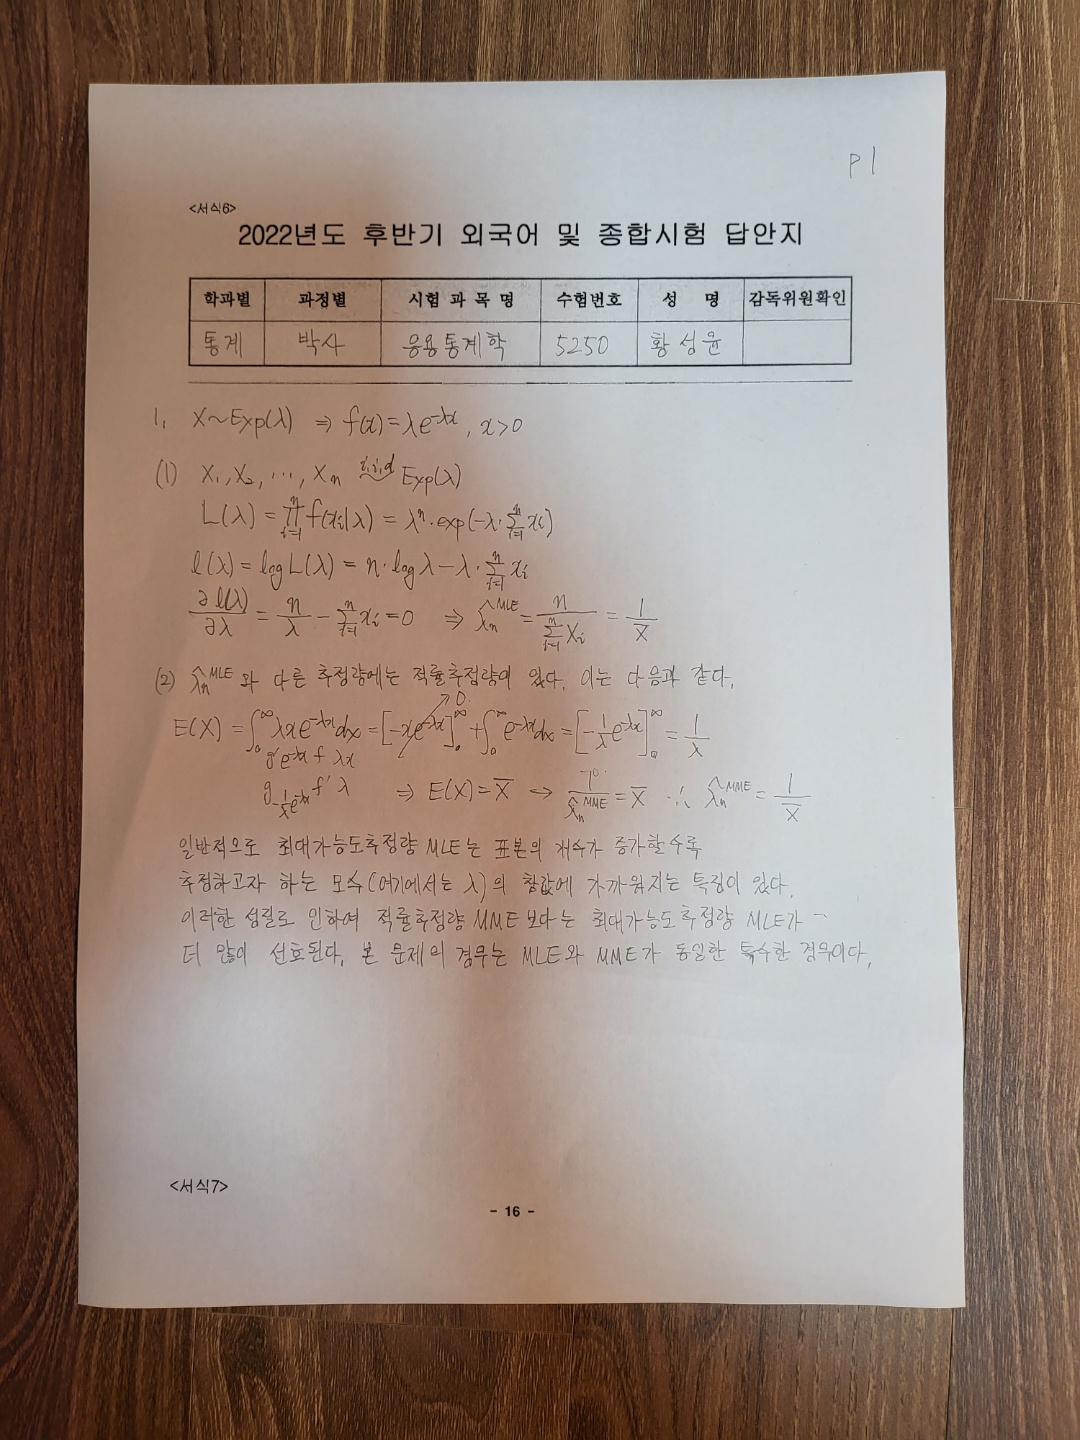 P 1
<서식6>
2022년도 후반기 외국어 및 종합시험 답안지
학과별 과정별 시험 과 목 명 수험번호 성 명 감독위원확인
통계 박사 응용통계학 5250 황성윤
1. X~Exp(λ) ⇒ f(x)=λe^{-λx}, x>0
(1) X₁, X₂, ···, Xₙ i.i.d ~ Exp(λ)
L(λ) = ∏_{i=1}^{n} f(xᵢ|λ) = λⁿ·exp(-λ·∑_{i=1}^{n} xᵢ)
l(λ) = log L(λ) = n·log λ - λ·∑_{i=1}^{n} xᵢ
∂l(λ)/∂λ = n/λ - ∑_{i=1}^{n} xᵢ = 0 ⇒ λ̂ₙ^{MLE} = n/∑_{i=1}^{n} Xᵢ = 1/X̄
(2) λ̂ₙ^{MLE}와 다른 추정량에는 적률추정량이 있다. 이는 다음과 같다.
E(X) = ∫₀^∞ λxe^{-λx}dx = [-xe^{-λx}]₀^∞ + ∫₀^∞ e^{-λx}dx = [-1/λ e^{-λx}]₀^∞ = 1/λ
0
g' e^{-λx} f λx
g -1/λ e^{-λx} f' λ ⇒ E(X) = X̄ ↔ 1/λ̂ₙ^{MME} = X̄ ∴ λ̂ₙ^{MME} = 1/X̄
일반적으로 최대가능도추정량 MLE는 표본의 개수가 증가할수록
추정하고자 하는 모수(여기에서는 λ)의 참값에 가까워지는 특징이 있다.
이러한 성질로 인하여 적률추정량 MME 보다는 최대가능도추정량 MLE가
더 많이 선호된다. 본 문제의 경우는 MLE와 MME가 동일한 특수한 경우이다.
<서식7>
- 16 -